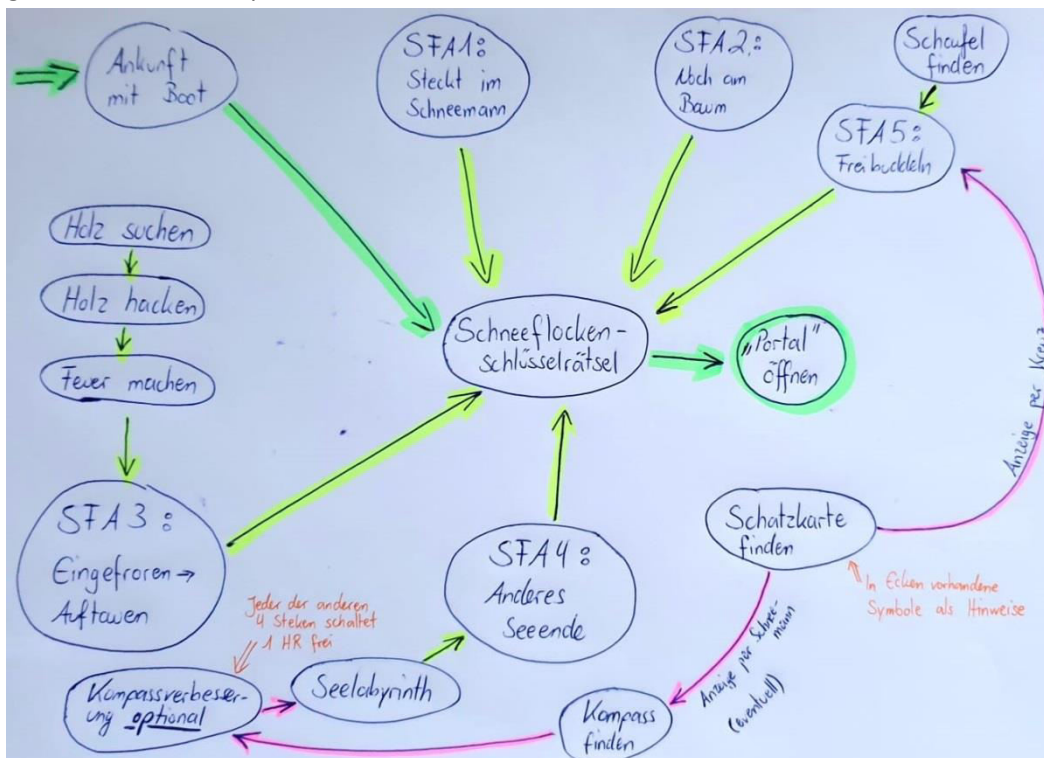 Ankunft
mit Boot
SFA1:
Steckt im
Schneemann
SFA2:
Noch am
Baum
Schaufel
finden
SFA5:
Freibuddeln
Holz suchen
Holz hacken
Feuer machen
Schneeflocken-
schlüsselrätsel
„Portal"
öffnen
SFA3:
Eingefroren →
Auftauen
SFA4:
Anderes
Seeende
Schatzkarte
finden
Anzeige per Kreuz
In Ecken vorhandene
Symbole als Hinweise
Jeder der anderen
4 Stellen schaltet
1 HR frei
Kompassverbesser-
ung optional
Seelabyrinth
Kompass
finden
Anzeige per Schnee-
mann
(eventuell)